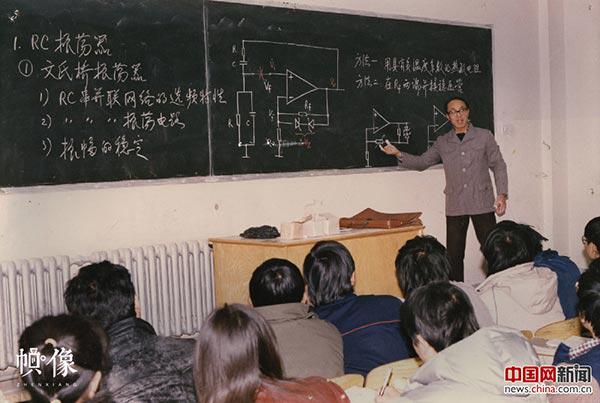 1. RC 振荡器
① 文氏桥振荡器
1) RC串并联网络的选频特性
2) 〃 〃 〃 振荡电路
3) 振幅的稳定
R
C
Vf
Rf
R
C
方法一 用具有负温度系数的热敏电阻
方法二 在Rf两端并接
帧像
ZHENXIANG
中国网新闻
news.china.com.cn